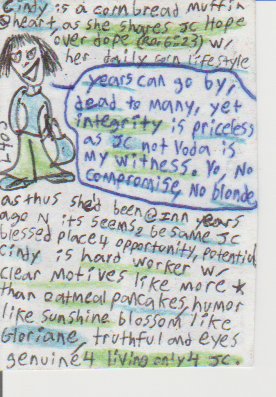 Cindy is a cornbread muffin
@heart, as she shares JC Hope
over dope (Ro. 6:23) w/
her daily corn lifestyle
years can go by,
dead to many, yet
integrity is priceless
as JC not Voda is
my witness. Yo, No
compromise, No blonde
as thus she'd been @Inn years
age N its seems be same JC
blessed place 4 opportunity, potential
Cindy is hard worker w/
clear motives like more *
than oatmeal pancakes, humor
like sunshine blossom like
Gloriane, truthful and eyes
genuine 4 living only 4 JC.